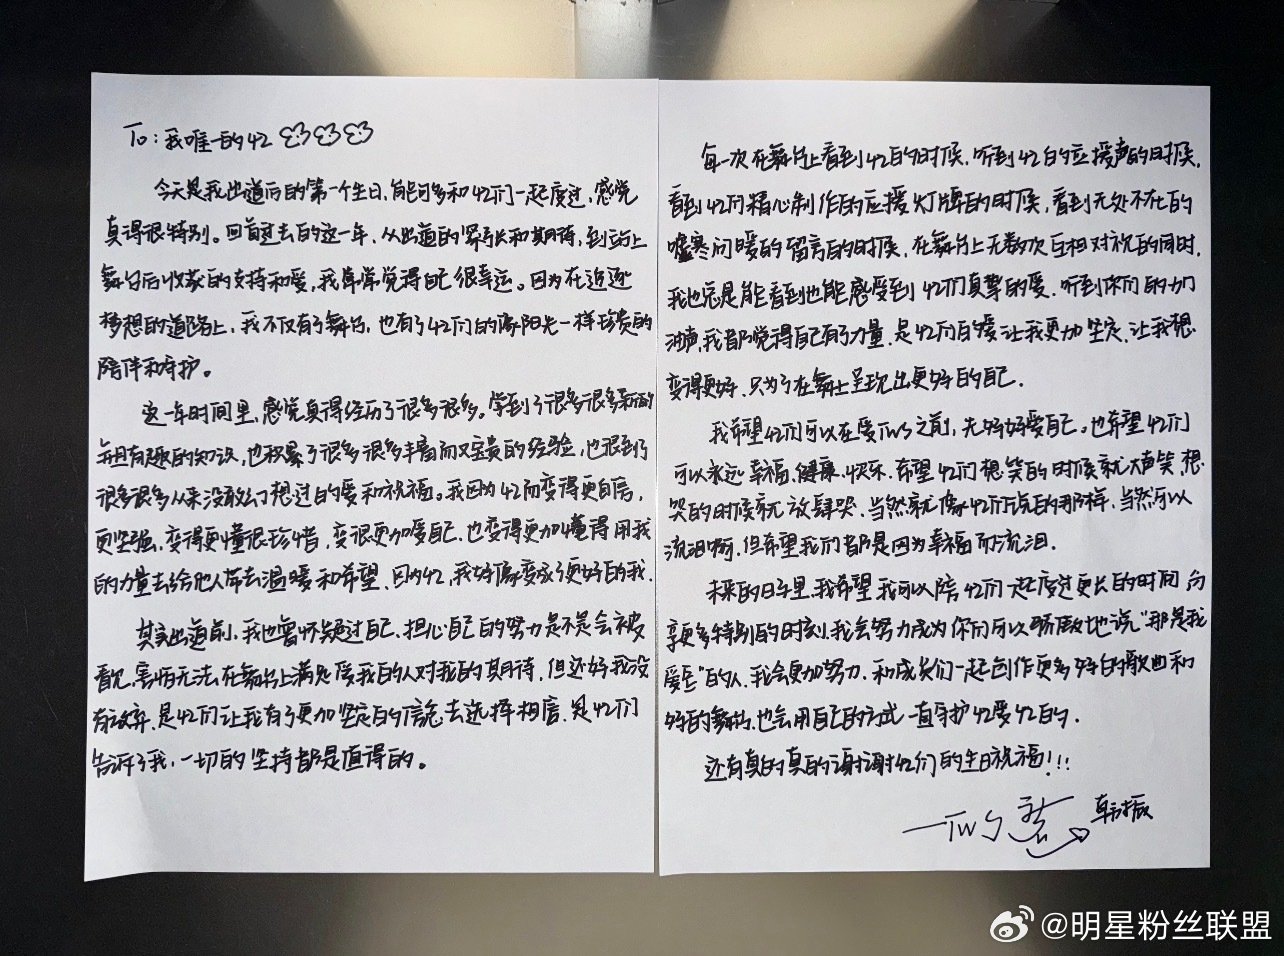 To：我唯一的42
今天是我出道后的第一个生日，能够多和42们一起度过，感觉
真得很特别。回首过去的这一年，从出道的紧张和期待，到站上
舞台后收获的支持和爱，我常常觉得自己很幸运。因为在追逐
梦想的道路上，我不仅有了舞台，也有了42们的像阳光一样珍贵的
陪伴和守护。
这一年时间里，感觉真得经历了很多很多。学到了很多很多新的
并且有趣的知识，也积累了很多很多丰富而又宝贵的经验，也得到了
很多很多从来没敢幻想过的爱和祝福。我因为42而变得更自信，
更坚强，变得更懂得珍惜，变得更加爱自己，也变得更加懂得用我
的力量去给他人带去温暖和希望，因为42，我好像变成了更好的我。
其实出道前，我也曾怀疑过自己，担心自己的努力是不是会被
看见，害怕无法在舞台上满足爱我的人对我的期待，但还好我没
有放弃，是42们让我有了更加坚定的信念去选择相信，是42们
告诉了我，一切的坚持都是值得的。
每一次在舞台上看到42的时候，听到42的应援声的时候，
看到42们精心制作的应援灯牌的时候，看到无处不在的
嘘寒问暖的留言的时候，在舞台上无数次互相对视的同时，
我也总是能看到也能感受到42们真挚的爱，听到你们的加
油声，我都觉得自己有了力量，是42们的爱让我更加坚定，让我想
变得更好，只为了在舞台上呈现出更好的自己。
我希望42们可以在爱TWS之前，先好好爱自己，也希望42们
可以永远幸福、健康、快乐，希望42们想笑的时候就大声笑，想
哭的时候就放肆哭，当然就像42们说的那样，当然可以
流泪啊，但希望我们都是因为幸福而流泪。
未来的日子里，我希望我可以陪42们一起度过更长的时间，分
享更多特别的时刻，我会努力成为你们可以骄傲地说“那是我
爱豆”的人，我会更加努力，和成员们一起创作更多好的歌曲和
好的舞台，也会用自己的方式一直守护42爱42的。
还有真的真的谢谢42们的生日祝福！！！
—TWS 韩振
@明星粉丝联盟